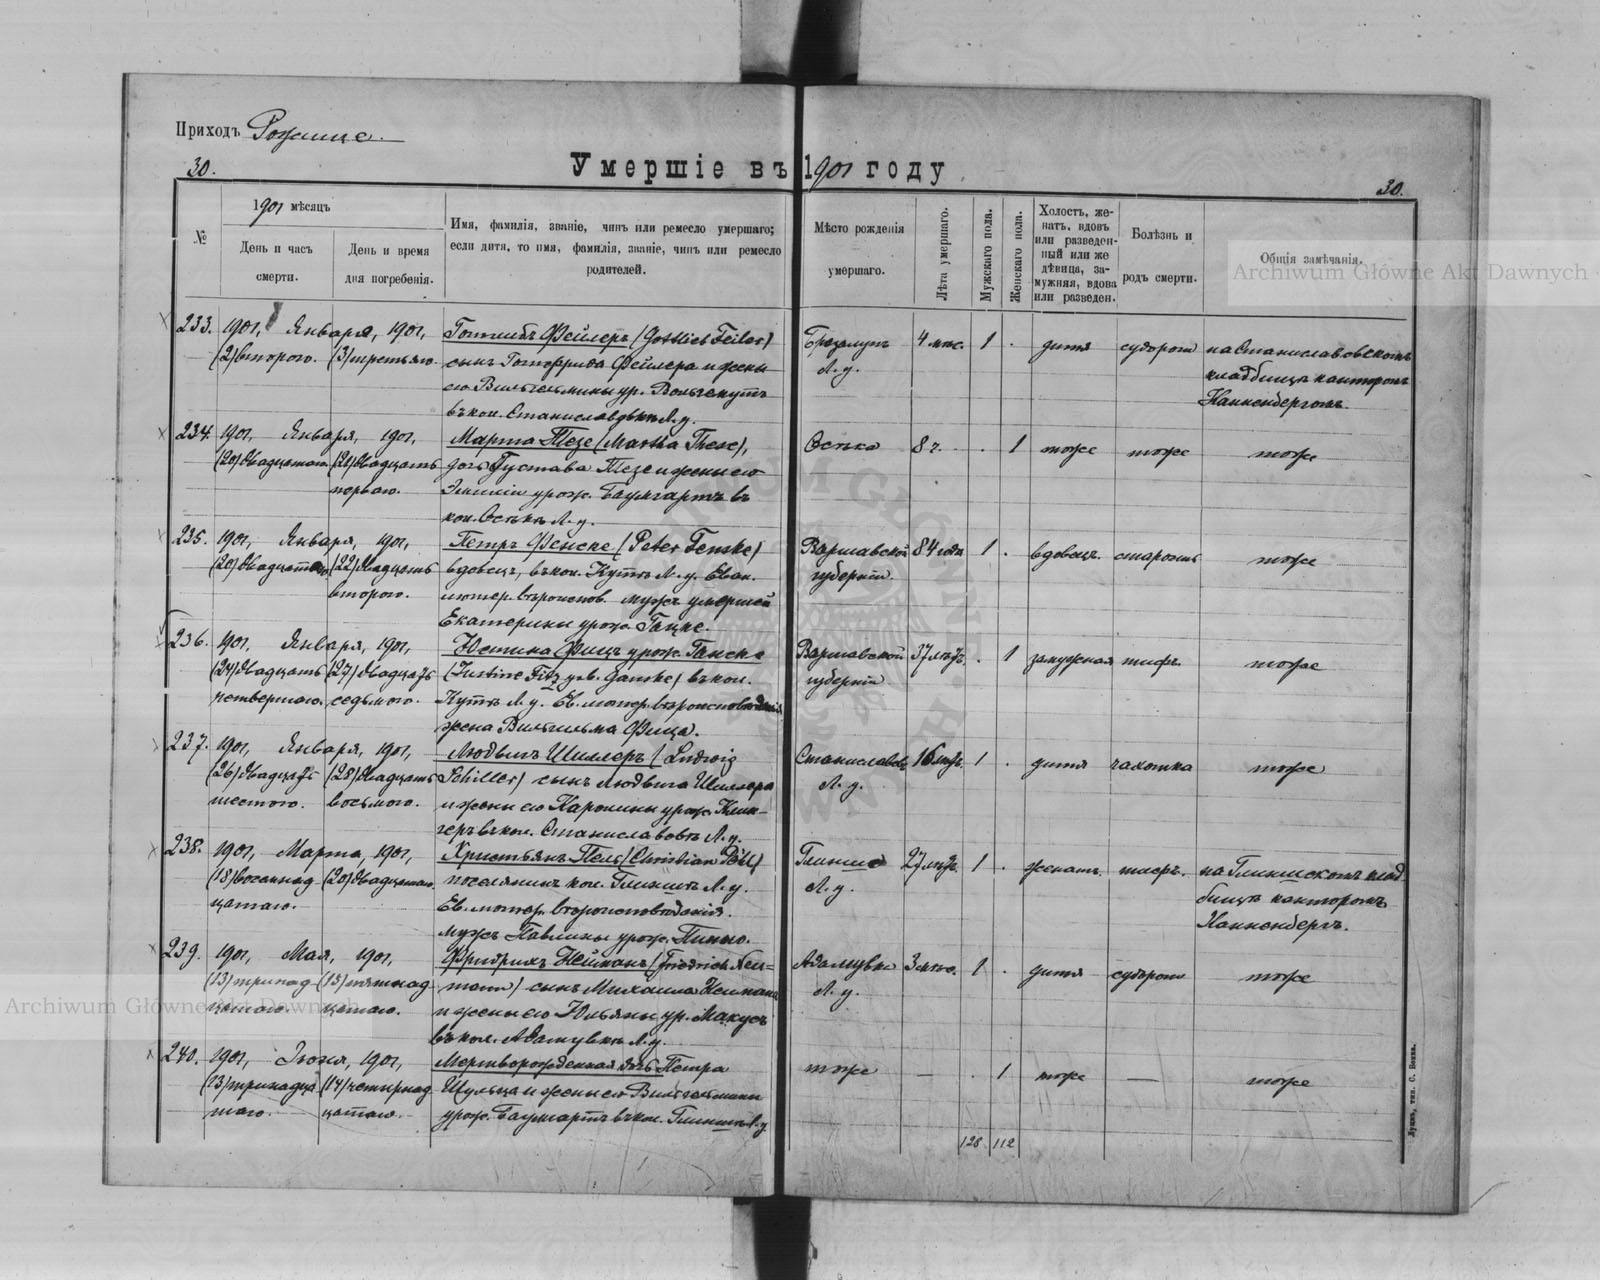 Приходъ Рожище.
30.
Умершіе въ 1901 году
30.
1901 мѣсяцъ
№
День и часъ
смерти.
День и время
дня погребенія.
Имя, фамилія, званіе, чинъ или ремесло умершаго;
если дитя, то имя, фамилія, званіе, чинъ или ремесло
родителей.
Мѣсто рожденія
умершаго.
Лѣта умершаго.
Мужскаго пола.
Женскаго пола.
Холостъ, же-
натъ, вдовъ
или разведен-
ный или же
дѣвица, за-
мужняя, вдова
или разведен.
Болѣзнь и
родъ смерти.
Общія замѣчанія.
Archiwum Główne Akt Dawnych
233. 1901, Января, 1901, Готлибъ Фейлеръ (Gottlieb Feiler) 4 мѣс. 1 . дитя судороги на Станиславовскомъ
(2) второго. (3) третьяго. сынъ Готфрида Фейлера и жены Л. у. кладбищѣ канторомъ
его Вильгельмины ур. Вольгемутъ Нанненбергомъ.
въ кол. Станиславовкѣ Л. у.
234. 1901, Января, 1901, Марта Тезе (Martha These), 8 ч. . 1 тоже тоже тоже
(20) двадцатаго (21) двадцать дочь Густава Тезе и жены его
перваго. Эмиліи урож. Баумгартъ въ
кол. Л. у.
235. 1901, Января, 1901, Петръ Фенске (Peter Fenske) Варшавской 84 года 1 . вдовецъ старость тоже
(20) двадцатаго (22) двадцать вдовецъ, въ кол. Кутъ Л. у. Еван. губерніи
второго. лютер. вѣроиспов. мужъ умершей
Екатерины урож. Гацке.
236. 1901, Января, 1901, Юстина Фицъ урож. Ганске Варшавской 37 лѣтъ . 1 замужная тифъ тоже
(24) двадцать (27) двадцать (Justine Fitz geb. Ganske) въ кол. губерніи
четвертаго. седьмого. Кутъ Л. у. Ев. лютер. вѣроисповѣданія
жена Вильгельма Фица.
237. 1901, Января, 1901, Людвигъ Шиллеръ (Ludwig Станиславовъ 16 лѣтъ 1 . дитя чахотка тоже
(26) двадцать (28) двадцать Schiller) сынъ Людвига Шиллера Л. у.
шестого. восьмого. и жены его Каролины урож. Клин-
геръ въ кол. Станиславовѣ Л. у.
238. 1901, Марта, 1901, Христьянъ Пель (Christian Pöhl) Глинище 27 лѣтъ 1 . женатъ тифъ. на Глинишскомъ клад-
(18) восемнад (20) двадцатаго. поселянинъ кол. Глинищъ Л. у. Л. у. бищѣ канторомъ
цатаго. Ев. лютер. вѣроисповѣданія. Нанненбергъ.
мужъ Павлины урож.
239. 1901, Мая, 1901, Фридрихъ Нейманъ (Friedrich Neu- Адамувка 3 1 . дитя судороги тоже
(13) тринад (15) пятнад mann) сынъ Михаила Неймана Л. у.
цатаго. цатаго. и жены его Юльяны ур. Макусъ
въ кол. Адамувкѣ Л. у.
Archiwum Główne Akt Dawnych
240. 1901, Іюня, 1901, Мертворожденная дочь Петра тоже — . 1 тоже — тоже
(13) тринадца (14) четырнад Шульца и жены его Вильгельмины
таго. цатаго. урож. Баумгартъ въ кол. Глинищъ Л. у.
128 112
Луцкъ, тип. С. Бонка.